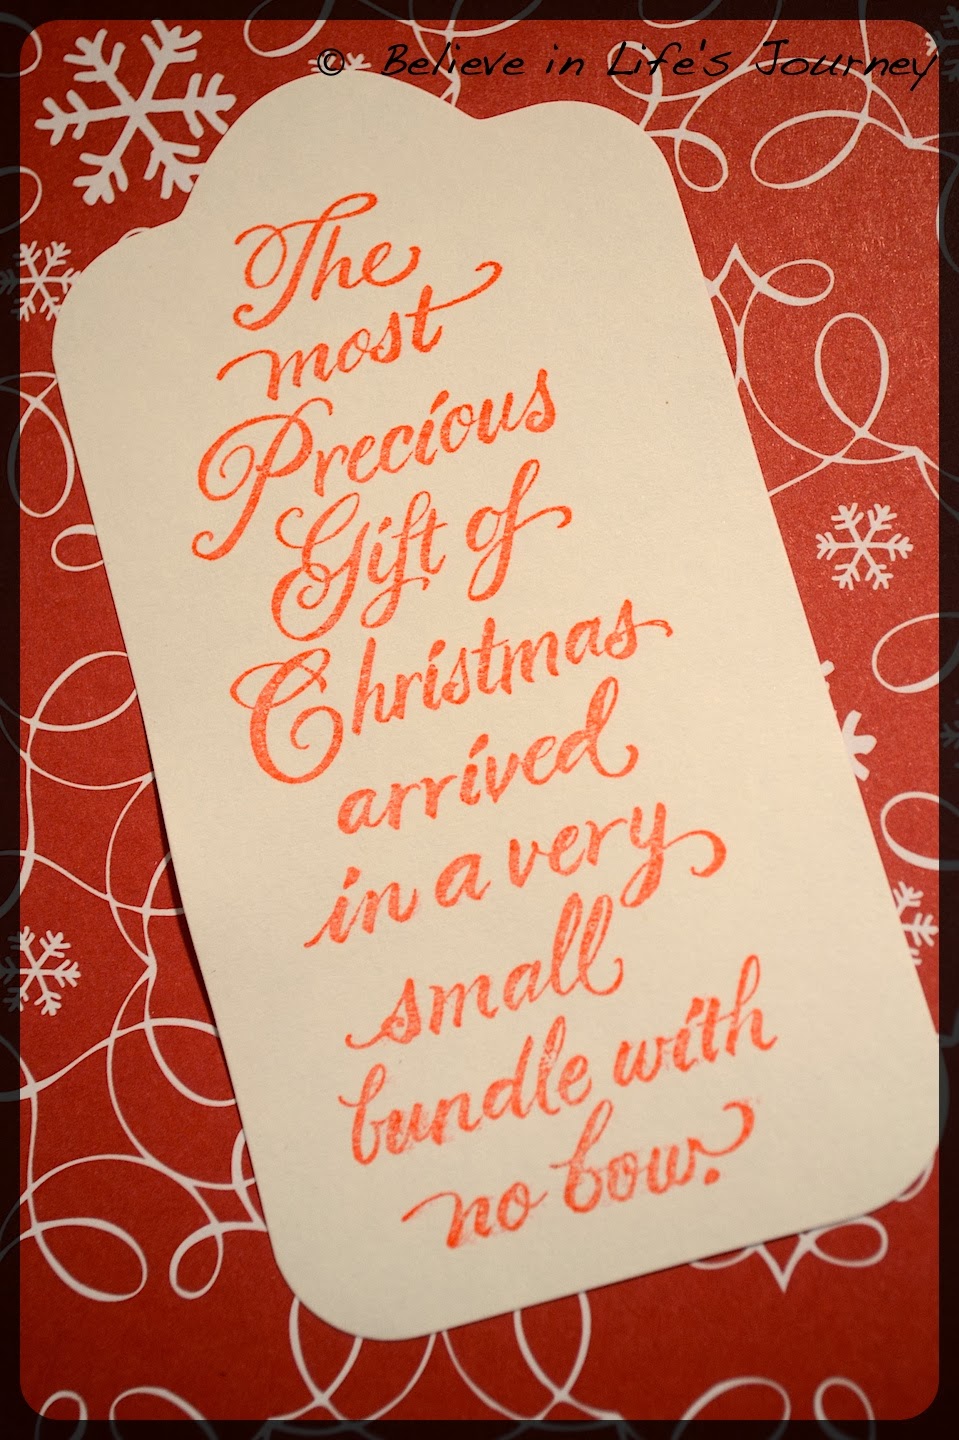 © Believe in Life's Journey
The
most
Precious
Gift of
Christmas
arrived
in a very
small
bundle with
no bow.